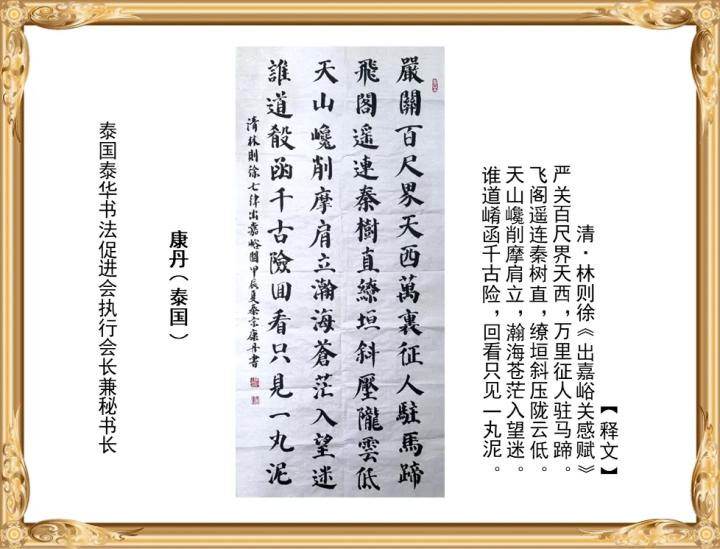 【释文】
清·林则徐《出嘉峪关感赋》
严关百尺界天西，万里征人驻马蹄。
飞阁遥连秦树直，缭垣斜压陇云低。
天山巉削摩肩立，瀚海苍茫入望迷。
谁道崤函千古险，回看只见一丸泥。
嚴關百尺界天西萬裏征人駐馬蹄
飛閣遥連秦樹直繚垣斜壓隴雲低
天山巉削摩肩立瀚海蒼茫入望迷
誰道殽函千古險囬看只見一丸泥
清林則徐七律出嘉峪關甲辰夏泰京康丹書
康丹（泰国）
泰国泰华书法促进会执行会长兼秘书长